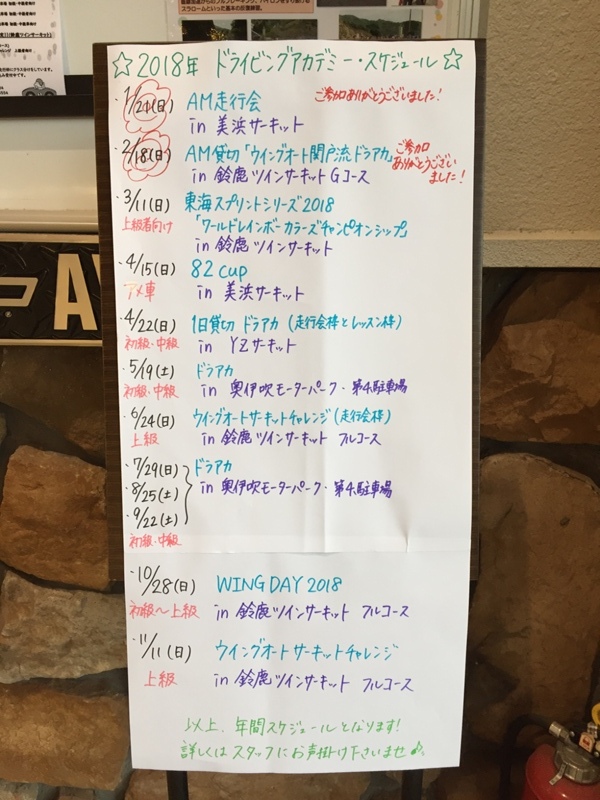 スラロームといった基本の反復練習。
☆2018年 ドライビングアカデミー・スケジュール☆
・1/21(日) AM走行会 ご参加ありがとうございました!
in 美浜サーキット
・2/18(日) AM貸切「ウイングオート関戸流ドラアカ」 ご参加
ありがとうござい
ました!
in 鈴鹿ツインサーキットGコース
・3/11(日) 東海スプリントシリーズ2018
上級者向け 「ワールドレインボーカラーズチャンピオンシップ」
in 鈴鹿ツインサーキット
・4/15(日) 82 cup
アメ車 in 美浜サーキット
・4/22(日) 1日貸切 ドラアカ (走行会枠とレッスン枠)
初級・中級 in YZサーキット
・5/19(土) ドラアカ
初級・中級 in 奥伊吹モーターパーク・第4駐車場
・6/24(日) ウイングオートサーキットチャレンジ(走行会枠)
上級 in 鈴鹿ツインサーキット フルコース
・7/29(日) ドラアカ
・8/25(土) in 奥伊吹モーターパーク・第4駐車場
・9/22(土)
初級・中級
・10/28(日) WING DAY 2018
初級~上級 in 鈴鹿ツインサーキット フルコース
・11/11(日) ウイングオートサーキットチャレンジ
上級 in 鈴鹿ツインサーキット フルコース
以上、年間スケジュールとなります!
詳しくはスタッフにお声掛け下さいませ♪。